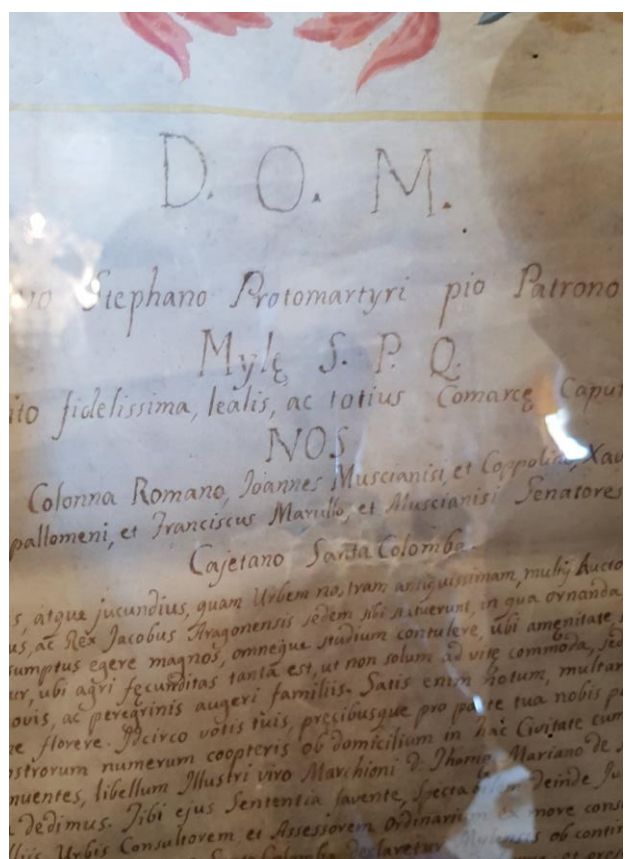 D. O. M.
Stephano Protomartyri pio Patrono
Mylę S. P. Q.
ito fidelissima, lealis, ac totius Comarcę Caput
NOS
Colonna Romano, Joannes Muscianisi, et Coppolino, Xav
pallomeni, et Franciscus Marullo, et Muscianisi Senatores
Cajetano Santa Colomba.
s, atque jucundius, quam Urbem nostram antiquissimam, multi Aucto
us, ac Rex Jacobus Aragonensis sedem sibi statuerunt, in qua ornanda,
sumptus egere magnos, omneque studium contulere, ubi amenitate,
ur, ubi agri fęcunditas tanta est, ut non solum ad vitę commoda, sed
ovis, ac peregrinis augeri familiis. Satis enim notum, multar
e florere. Idcirco votis tuis, precibusque pro parte tua nobis p
ostrorum numerum coopteris ob domicilium in hac Civitate cum
nuentes, libellum Illustri viro Marchioni D. Thomę Mariano de
dedimus. Tibi ejus Sententia favente, deinde Ju
Urbis Consultorem et Assessorem Ordinarium ex more cons
Santa Colomba declaretur Mylensis ob contin